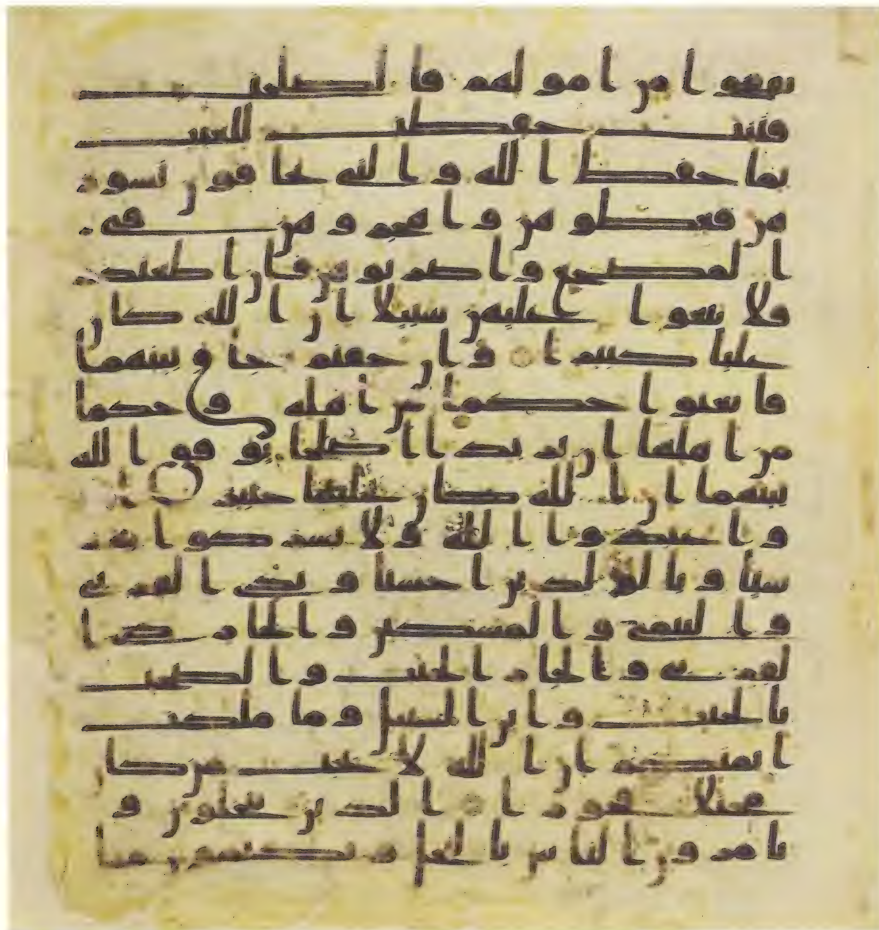 نفقوا من امولهم فالصلحت
قنتت حفظت للغيب
بما حفظ الله والتي تخافون نشوز
هن فعظوهن واهجروهن في
المضجع واضربوهن فان اطعنكم
فلا تبغوا عليهن سبيلا ان الله كان
عليا كبيرا وان خفتم شقاق بينهما
فابعثوا حكما من اهله وحكما
من اهلها ان يريدا اصلحا يوفق الله
بينهما ان الله كان عليما خبيرا
واعبدوا الله ولا تشركوا به
شيا وبالولدين احسنا وبذي القربى
واليتمى والمسكين والجار ذي ا
لقربى والجار الجنب والصحب
بالجنب وابن السبيل وما ملكت
ايمنكم ان الله لا يحب من كان
مختلا فخورا الذين يبخلون و
يامرون الناس بالبخل ويكتمون ما